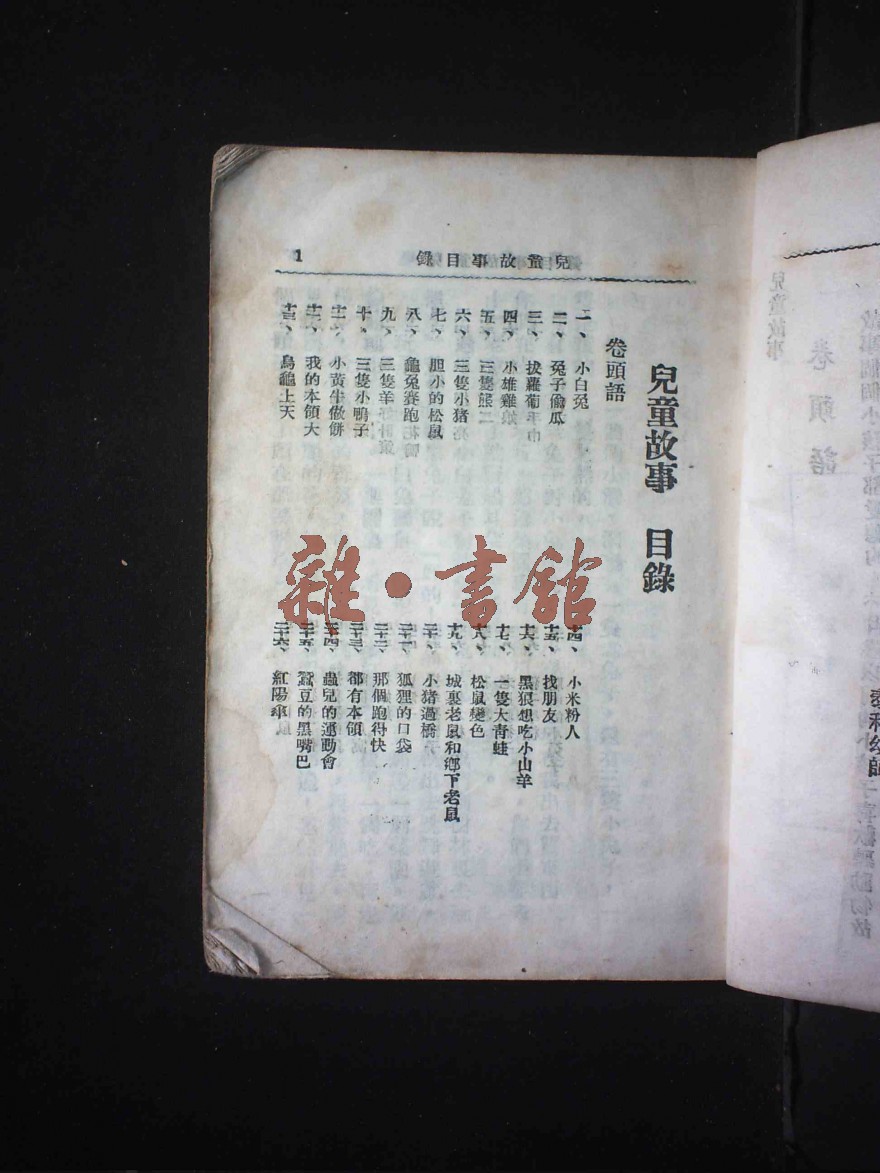 兒童故事目錄
1
兒童故事 目錄
卷頭語
一、小白兔
二、兔子偷瓜
三、拔蘿蔔
四、小雄雞
五、三隻熊
六、三隻小猪
七、胆小的松鼠
八、龜兔賽跑
九、三隻羊
十、三隻小鴨子
十一、小黃牛做餅
十二、我的本領大
十三、烏龜上天
十四、小米粉人
十五、找朋友
十六、黑狼想吃小山羊
十七、一隻大青蛙
十八、松鼠變色
十九、城裏老鼠和鄉下老鼠
二十、小猪過橋
二十一、狐狸的口袋
二十二、那個跑得快
二十三、都有本領
二十四、蟲兒的運動會
二十五、蠶豆的黑嘴巴
二十六、紅陽傘
雜·書館